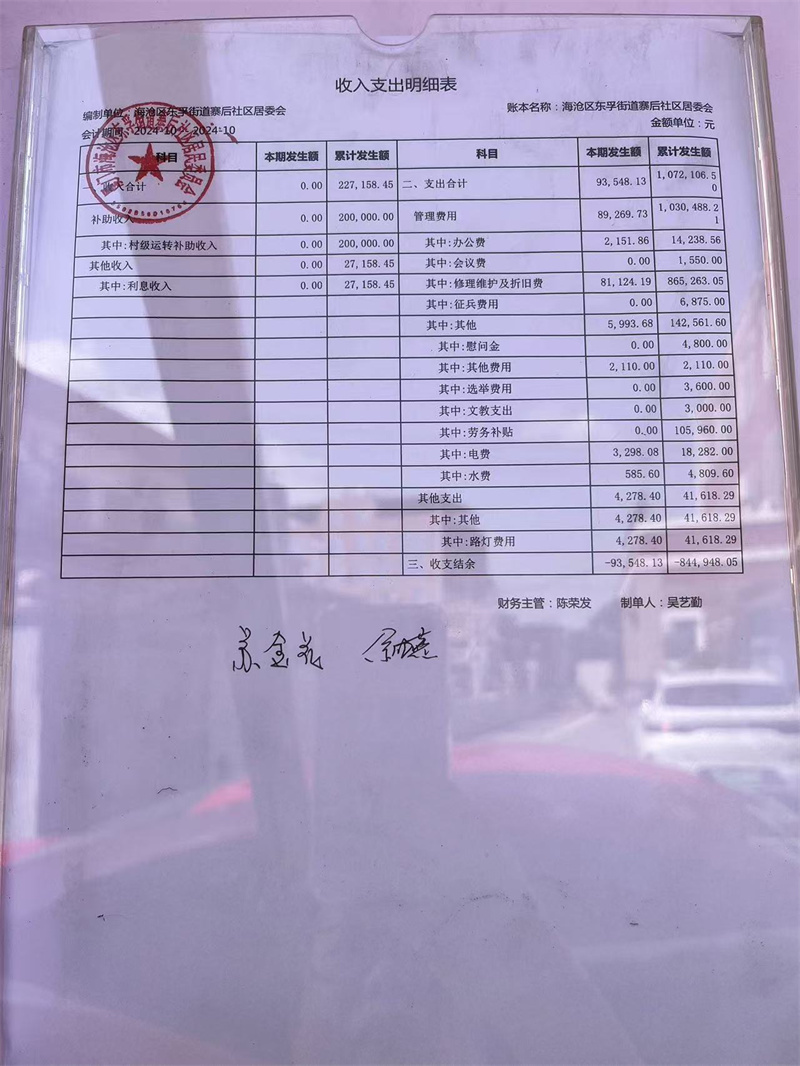 收入支出明细表
编制单位：海沧区东孚街道寨后社区居委会 账本名称：海沧区东孚街道寨后社区居委会
会计期间：2024-10 2024-10 金额单位：元
科目 本期发生额 累计发生额 科目 本期发生额 累计发生额
收入合计 0.00 227,158.45 二、支出合计 93,548.13 1,072,106.50
补助收入 0.00 200,000.00 管理费用 89,269.73 1,030,488.21
其中:村级运转补助收入 0.00 200,000.00 其中:办公费 2,151.86 14,238.56
其他收入 0.00 27,158.45 其中:会议费 0.00 1,550.00
其中:利息收入 0.00 27,158.45 其中:修理维护及折旧费 81,124.19 865,263.05
其中:征兵费用 0.00 6,875.00
其中:其他 5,993.68 142,561.60
其中:慰问金 0.00 4,800.00
其中:其他费用 2,110.00 2,110.00
其中:选举费用 0.00 3,600.00
其中:文教支出 0.00 3,000.00
其中:劳务补贴 0.00 105,960.00
其中:电费 3,298.08 18,282.00
其中:水费 585.60 4,809.60
其他支出 4,278.40 41,618.29
其中:其他 4,278.40 41,618.29
其中:路灯费用 4,278.40 41,618.29
三、收支结余 -93,548.13 -844,948.05
财务主管：陈荣发 制单人：吴艺勤